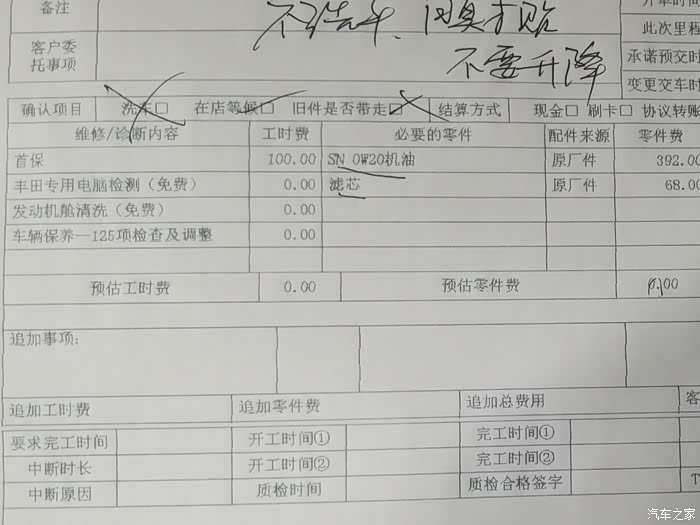 备注
不洗车.
不要升降
开单时间
此次里程
客户委
托事项
承诺预交时
变更交车时
确认项目 洗车□ 在店等候□ 旧件是否带走□ 结算方式 现金□ 刷卡□ 协议转账
维修/诊断内容 工时费 必要的零件 配件来源 零件费
首保 100.00 SN 0W20机油 原厂件 392.00
丰田专用电脑检测（免费） 0.00 滤芯 原厂件 68.00
发动机舱清洗（免费） 0.00
车辆保养—125项检查及调整 0.00
预估工时费 0.00 预估零件费 0.00
追加事项:
追加工时费 追加零件费 追加总费用 客
要求完工时间 开工时间① 完工时间①
中断时长 开工时间② 完工时间②
中断原因 质检时间 质检合格签字 T
汽车之家